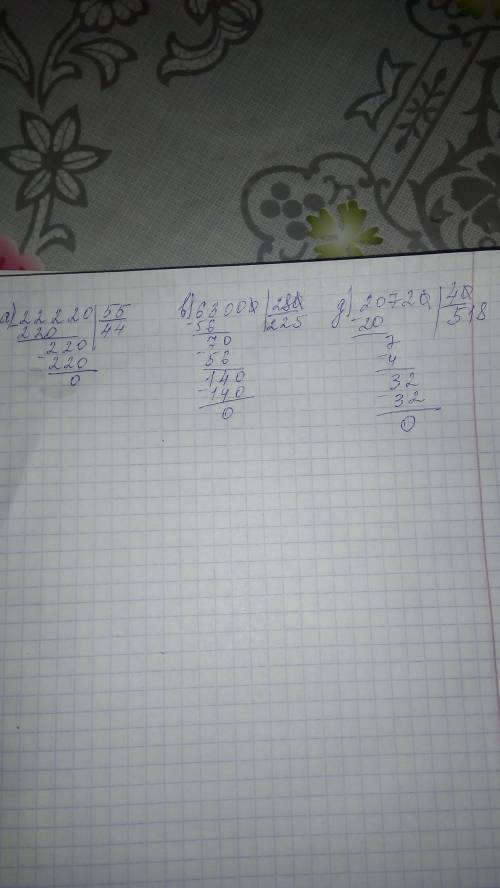 а) 22220 | 55
220 | 44
-220
220
0
в) 63000 | 280
-56 | 225
70
-56
140
-140
0
д) 20720 | 40
-20 | 518
7
-4
32
-32
0